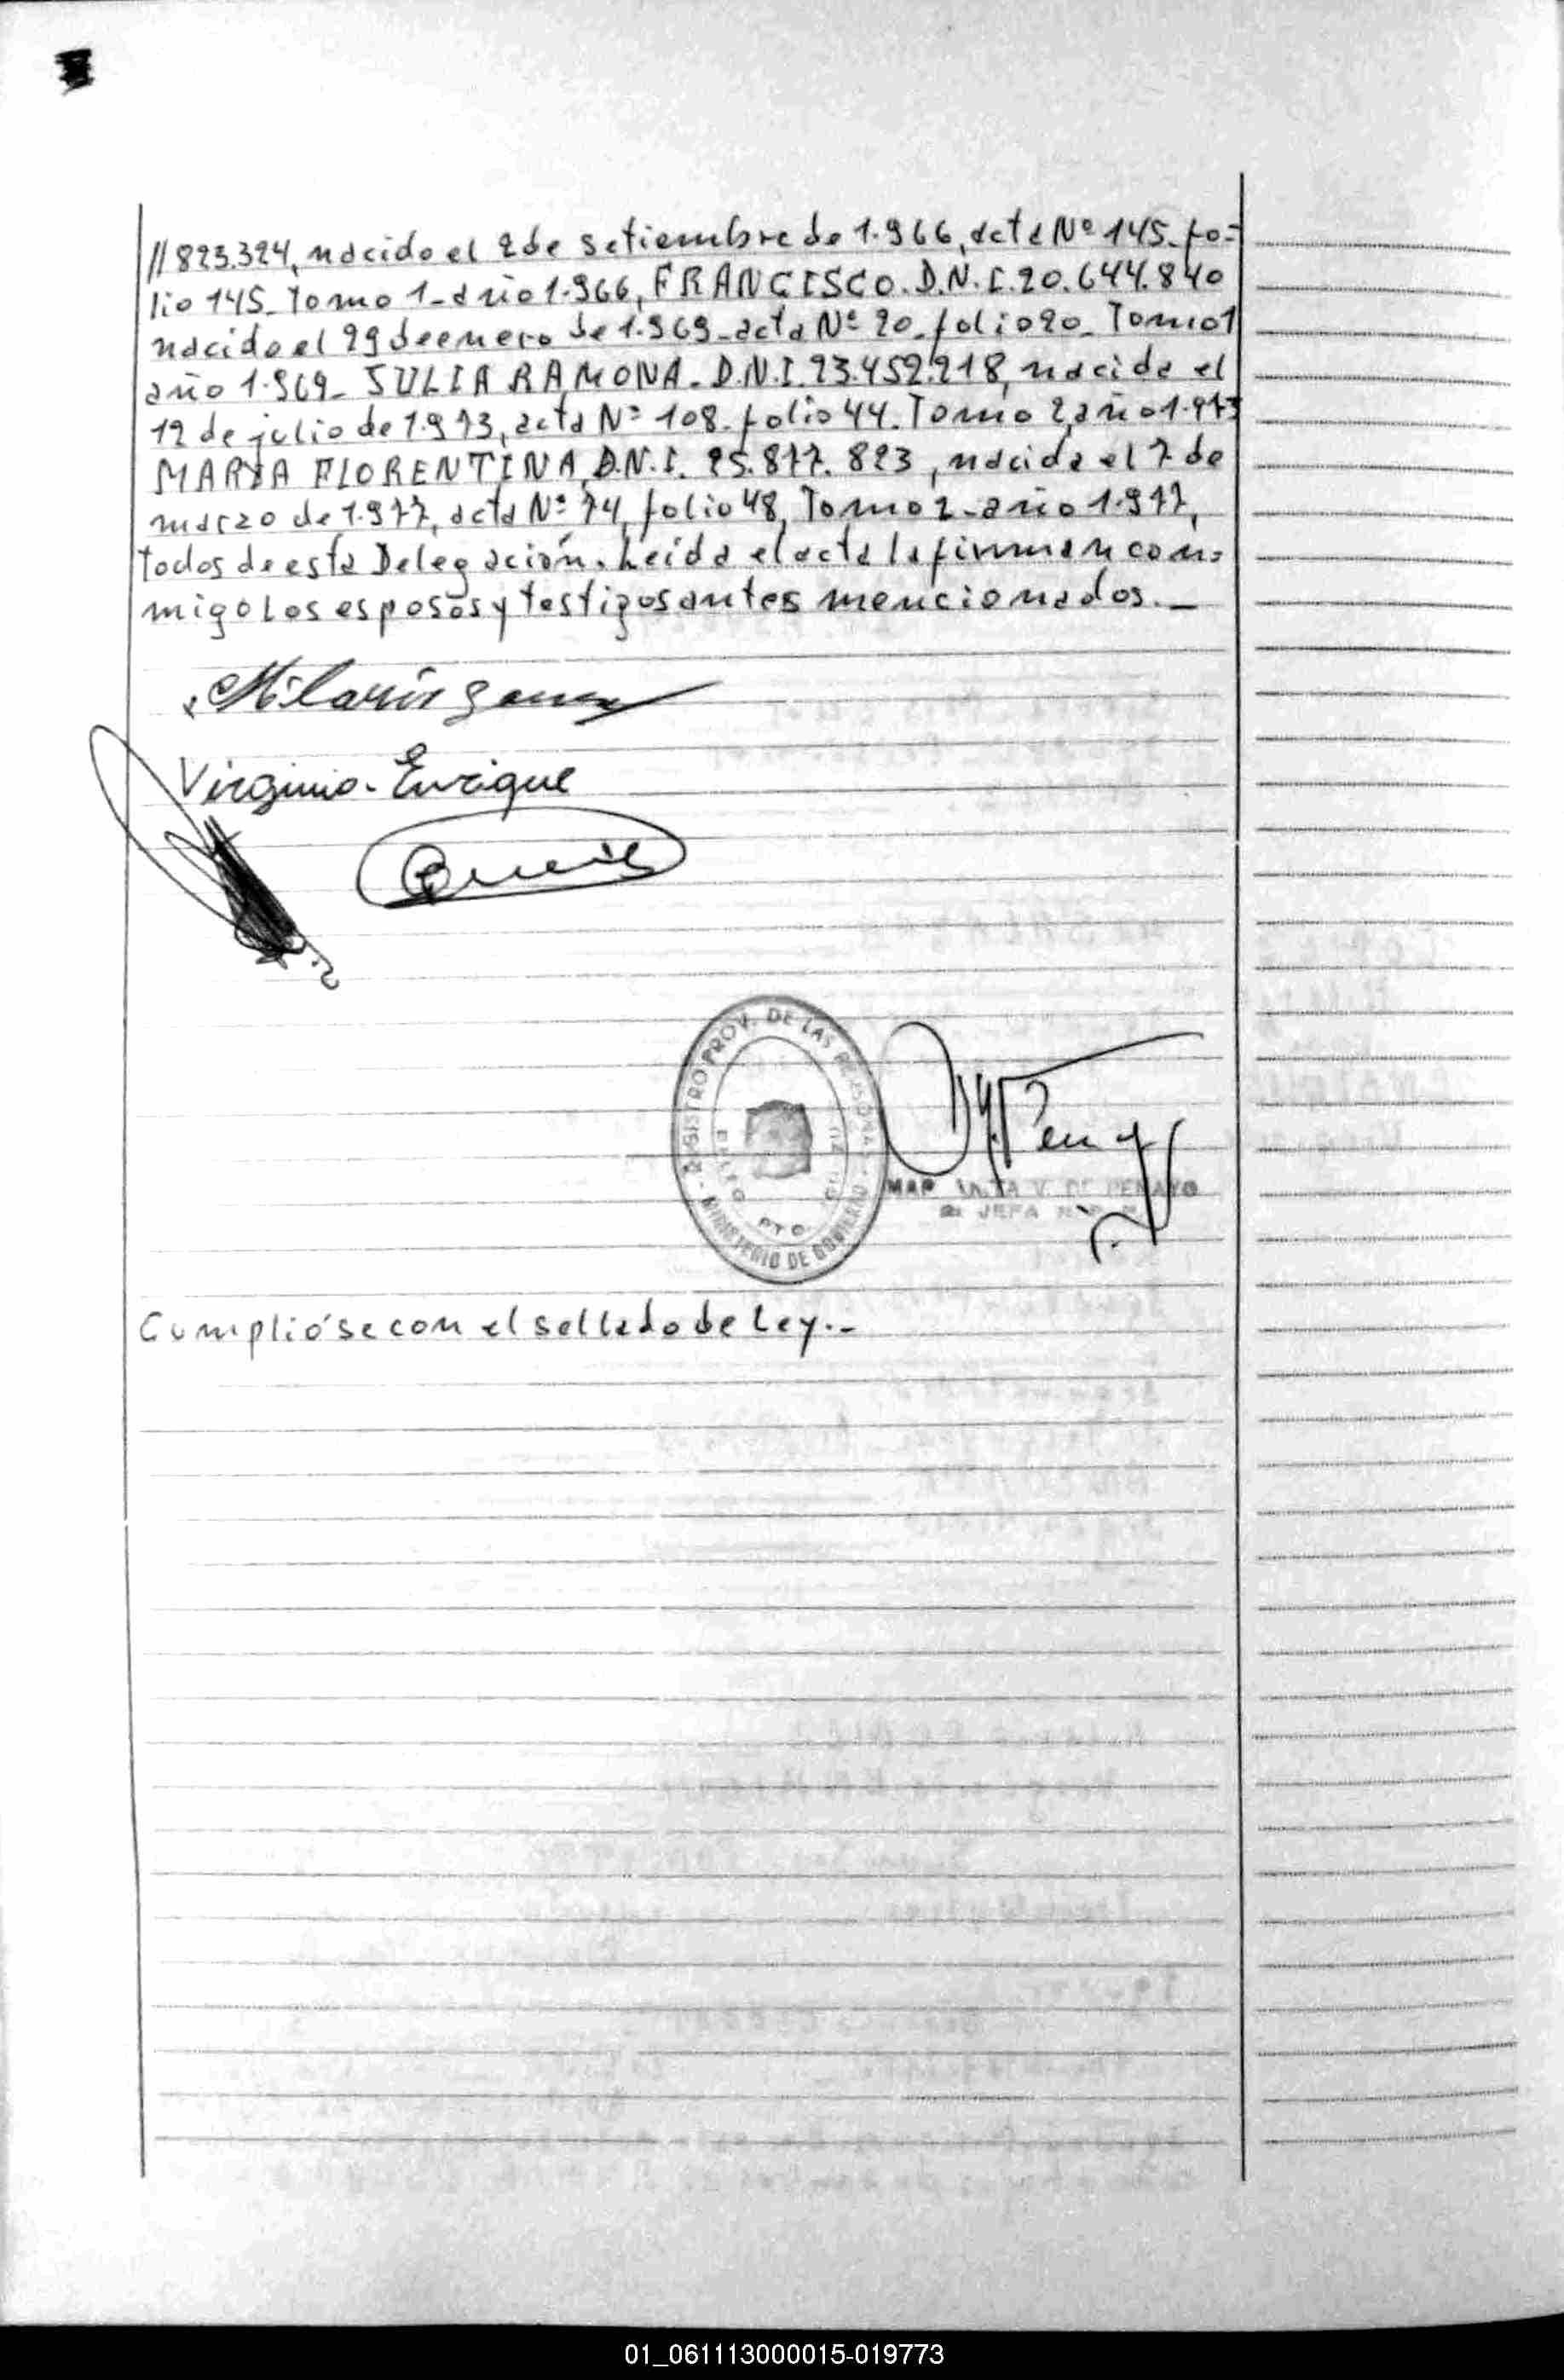 //823.324, nacido el 2 de setiembre de 1.966, acta Nº 145. fo=
lio 145. Tomo 1- año 1.966, FRANCISCO. D.N.I. 20.644.840
nacido el 29 de enero de 1.969- acta Nº 20. folio 20. Tomo 1
año 1.969- JULIA RAMONA. D.N.I. 23.452.218, nacida el
12 de julio de 1.973, acta Nº 108. folio 44. Tomo 2, año 1.973
MARIA FLORENTINA, D.N.I. 25.877.823, nacida el 7 de
marzo de 1.977, acta Nº 74, folio 48, Tomo 2- año 1.977,
todos de esta Delegación. Leida el acta la firman con=
migo los esposos y testigos antes mencionados.-
Virginio. Enrique
REGISTRO PROV. DE LAS PERSONAS
MINISTERIO DE GOBIERNO
V. DE PERAYO
JEFA
Cumplióse con el sellado de Ley.-
01_061113000015-019773